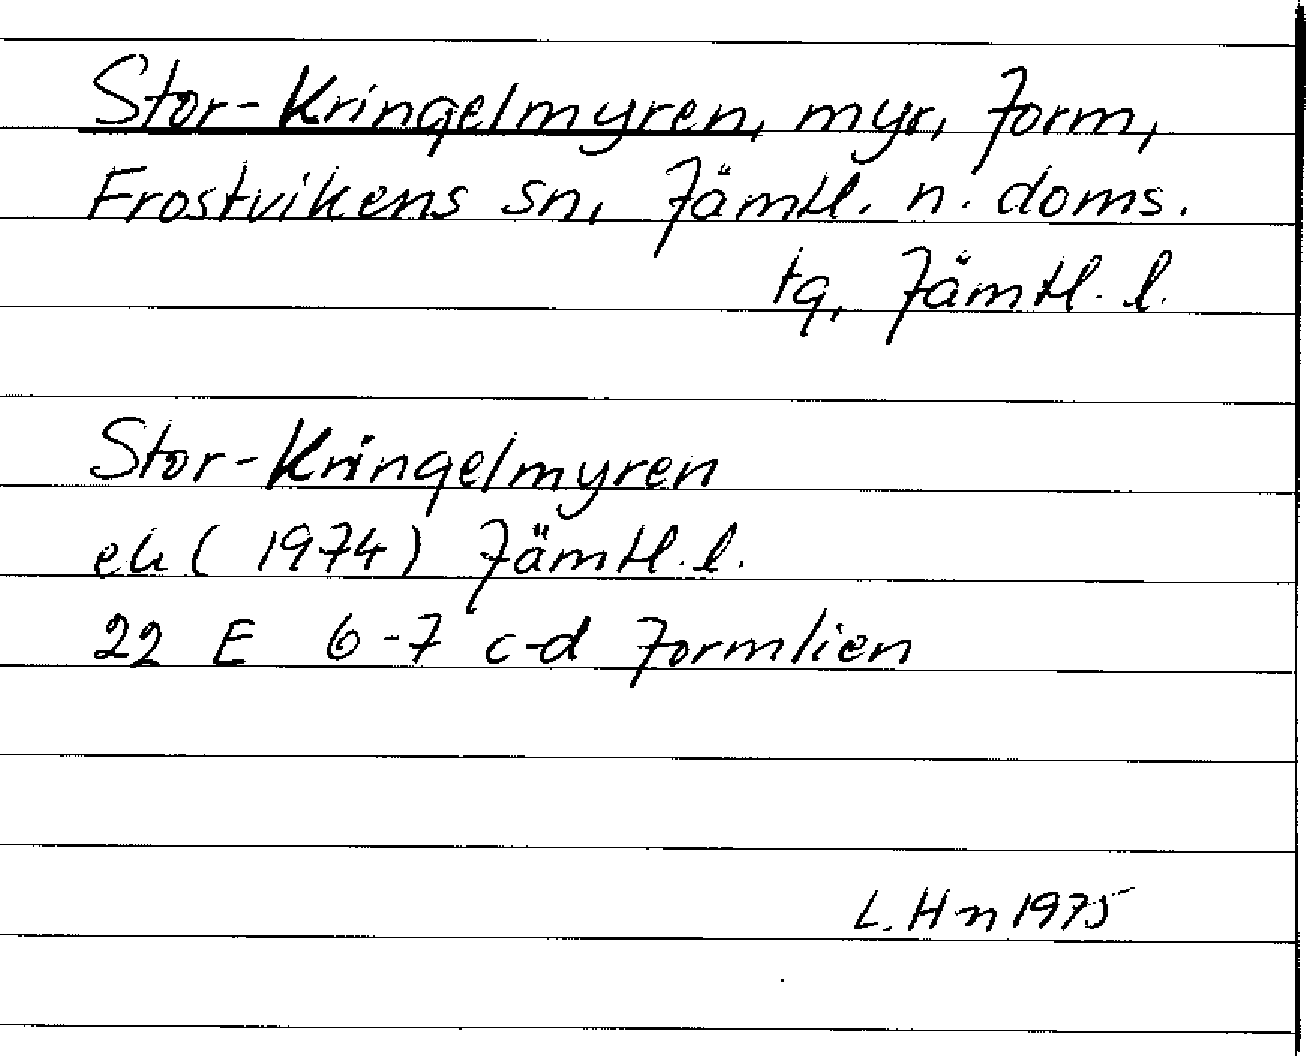 Stor-Kringelmyren, myr, Jorm,
Frostvikens sn, Jämtl. n. doms.
tg, Jämtl. l.
Stor-Kringelmyren
ek (1974) Jämtl. l.
22 E 6-7 c-d Jormlien
L. Hn 1975